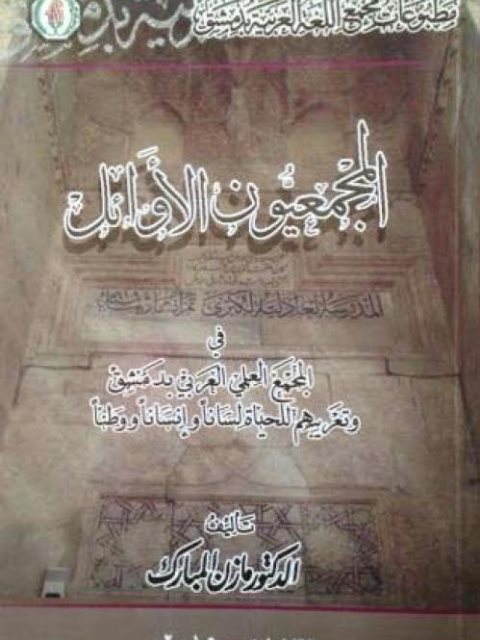 مطبوعات مجمع اللغة العربية بدمشق
المجمعيُّون الأوَائل
في
المجمَع العِلمي العَرَبي بدمَشق
وتعَريبهم للحيَاة لسَاناً وإنسَاناً ووَطناً
تأليف
الدكتور مازن المبارك